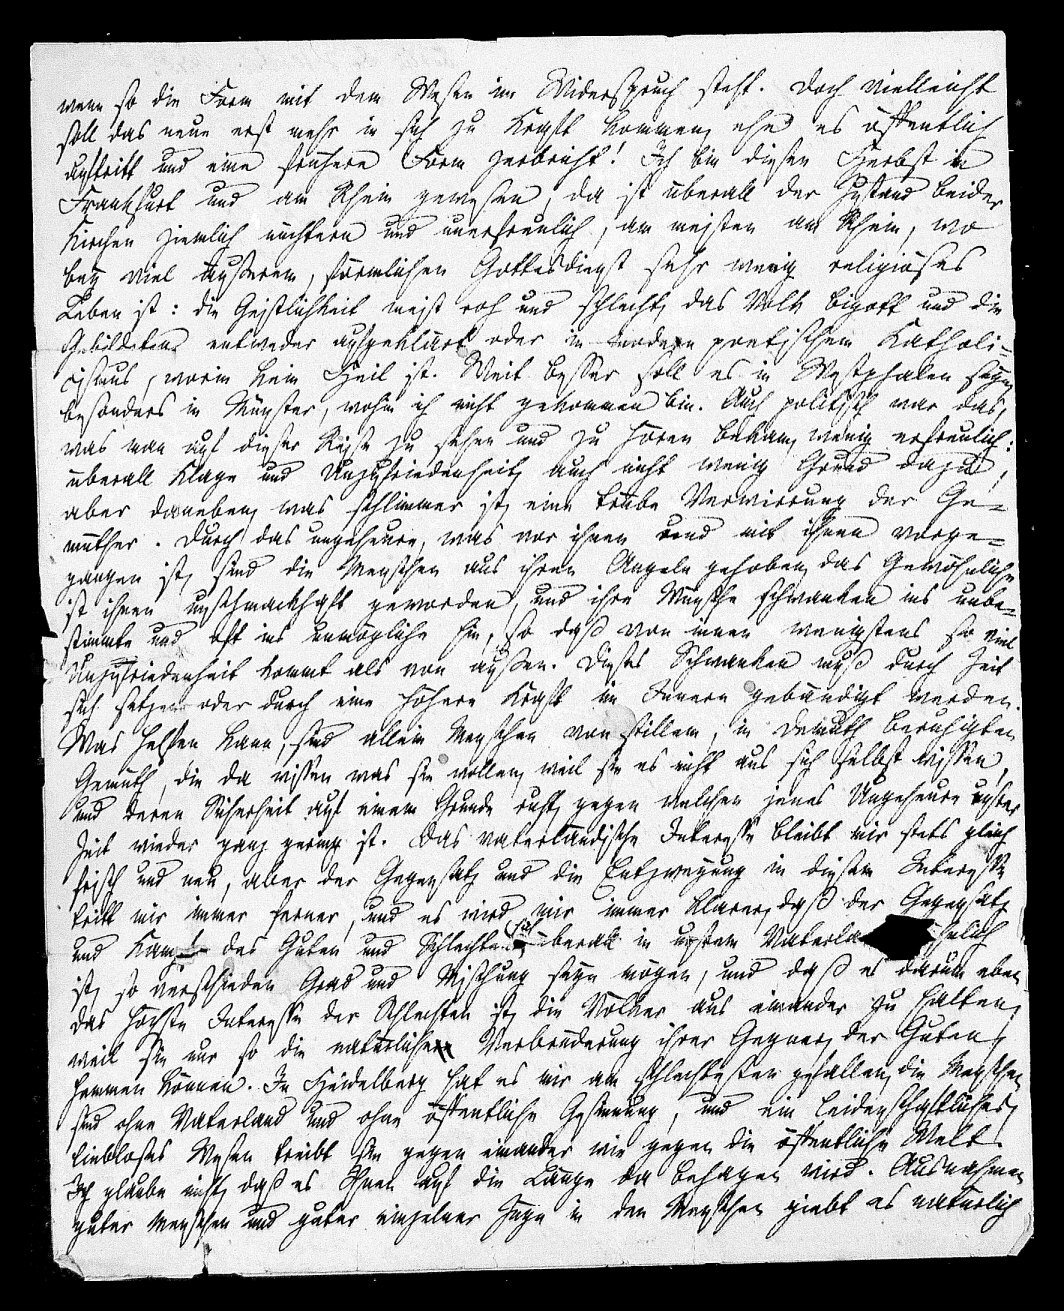 wenn so die Form mit dem Wesen im Widerspruch steht. Doch vielleicht
soll das neue erst mehr in sich zu Kraft kommen, ehe es öffentlich
auftritt und eine frühere Form zerbricht! Ich bin diesen Herbst in
Frankfurt und am Rhein gewesen, da ist überall der Zustand beider
Kirchen ziemlich nüchtern und unerfreulich, am meisten am Rhein, wo
bey viel äußerem, förmlichen Gottesdienst sehr wenig religiöses
Leben ist: die Geistlichkeit meist roh und schlecht, das Volk bigott und die
Gebildeten entweder aufgeklärt oder in modern poetischem Katholi-
cismus, worin kein Heil ist. Weit besser soll es in Westphalen seyn
besonders in Münster, wohin ich nicht gekommen bin. Auch politisch war das,
was man auf dieser Reise zu sehen und zu hören bekam, wenig erfreulich:
überall Klage und Unzufriedenheit, auch nicht wenig Grund dazu,
aber daneben, was schlimmer ist, eine trübe Verwirrung der Ge-
müther. Durch das ungeheure, was vor ihnen und mit ihnen vorge-
gangen ist, sind die Menschen aus ihren Angeln gehoben, das Gewöhnliche
ist ihnen unschmackhaft geworden, und ihre Wünsche schwanken ins unbe-
stimmte und oft ins unmögliche hin, so daß von innen wenigstens so viel
Unzufriedenheit kommt als von außen. Dieses Schwanken muß durch Zeit
sich setzen oder durch eine höhere Kraft im Innern gebändigt werden.
Was helfen kann, sind allein Menschen von stillem, in Demuth beruhigten
Gemüth, die da wissen was sie wollen, weil sie es nicht aus sich selbst wissen,
und deren Sicherheit auf einem Grunde ruht, gegen welchen jenes Ungeheure unsrer
Zeit wieder ganz gering ist. Das vaterländische Interesse bleibt mir stets gleich
frisch und neu, aber der Gegensatz und die Entzweyung in diesem Interesse
tritt mir immer ferner, und es wird mir immer klarer, daß der Gegensatz
und Kampf des Guten und Schlechten sich überall in unserm Vaterla
ist, so verschieden Grad und Mischung seyn mögen, und daß es darum eben
das höchste Interesse der Schlechten ist, die Völker aus einander zu halten,
weil sie nur so die natürliche Verbrüderung ihrer Gegner, der Guten,
hemmen können. In Heidelberg hat es mir am schlechtesten gefallen, die Menschen
sind ohne Vaterland und ohne öffentliche Gesinnung, und ein leidenschaftliches,
liebloses Wesen treibt sie gegen einander wie gegen die öffentliche Welt.
Ich glaube nicht, daß es Ihnen auf die Länge da behagen wird. Ausnahmen
guter Menschen und guter einzelner Züge in den Menschen giebt es natürlich